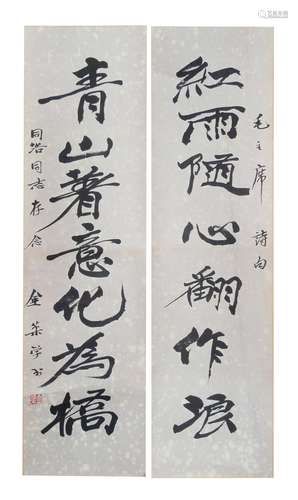 紅雨隨心翻作浪
毛主席 詩句
青山著意化為橋
同治同志存念
金葉学书